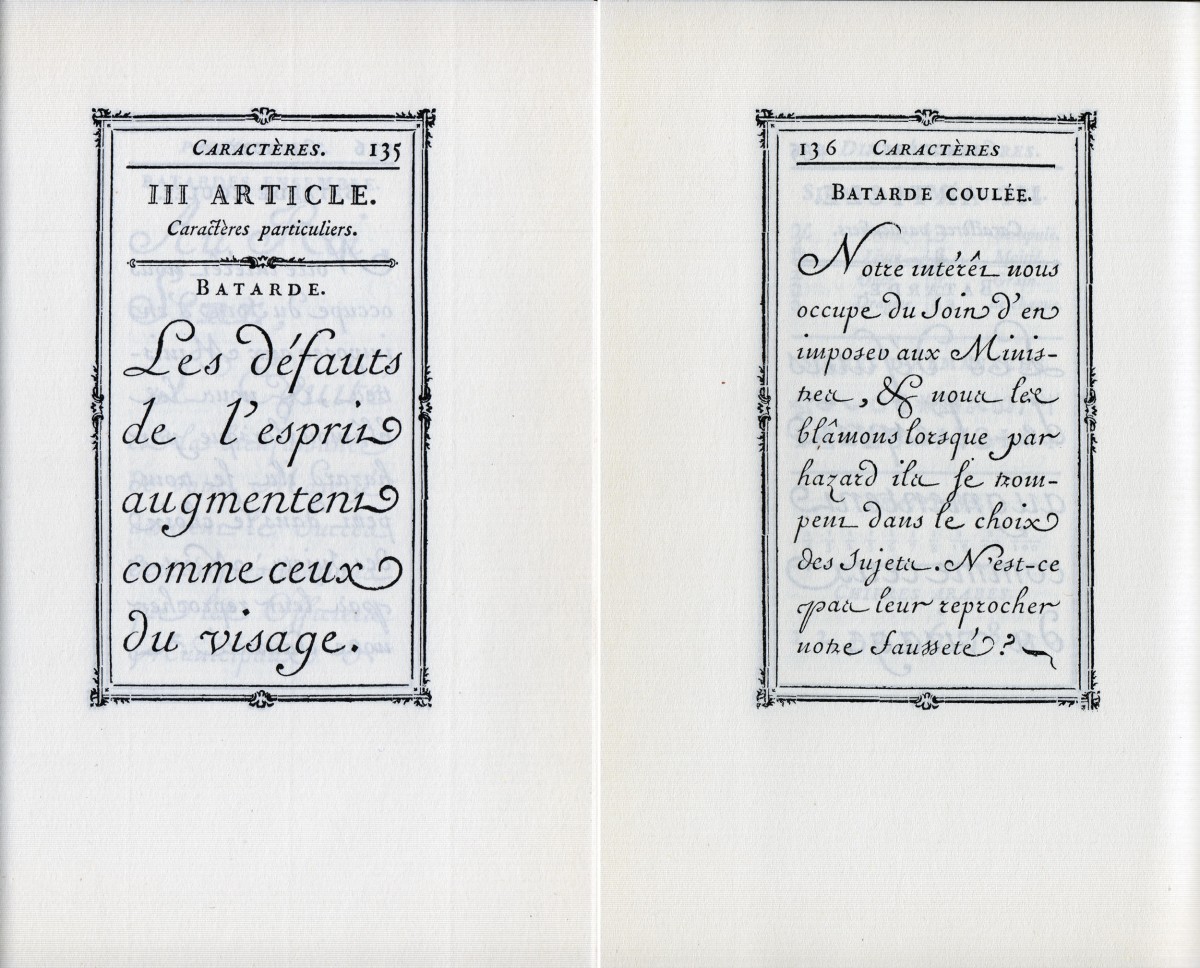 CARACTÈRES. 135
III ARTICLE.
Caractères particuliers.
BATARDE.
Les défauts
de l'esprit
augmentent
comme ceux
du visage.
136 CARACTÈRES
BATARDE COULÉE.
Notre intérêt nous
occupe du soin d'en
imposer aux Minis-
tres, & nous les
blâmons lorsque par
hazard ils se trom-
pent dans le choix
des sujets. N'est-ce
pas leur reprocher
notre fausseté?